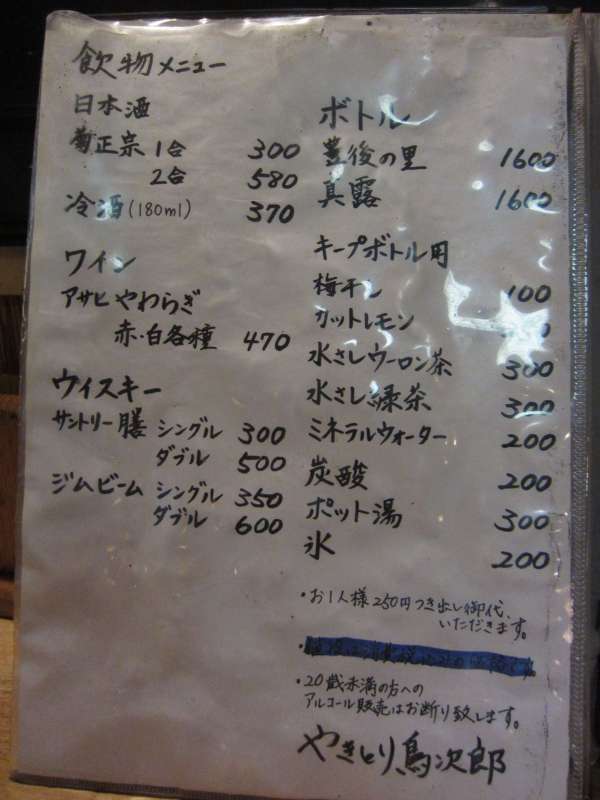 飲物メニュー
日本酒
菊正宗 1合 300
2合 580
冷酒(180ml) 370
ワイン
アサヒやわらぎ
赤・白各種 470
ウィスキー
サントリー膳 シングル 300
ダブル 500
ジムビーム シングル 350
ダブル 600
ボトル
豊後の里 1600
真露 1600
キープボトル用
梅干し 100
カットレモン
水さしウーロン茶 300
水さし緑茶 300
ミネラルウォーター 200
炭酸 200
ポット湯 300
氷 200
・お1人様250円つき出し御代、
いただきます。
・20歳未満の方への
アルコール販売はお断り致します。
やきとり鳥次郎